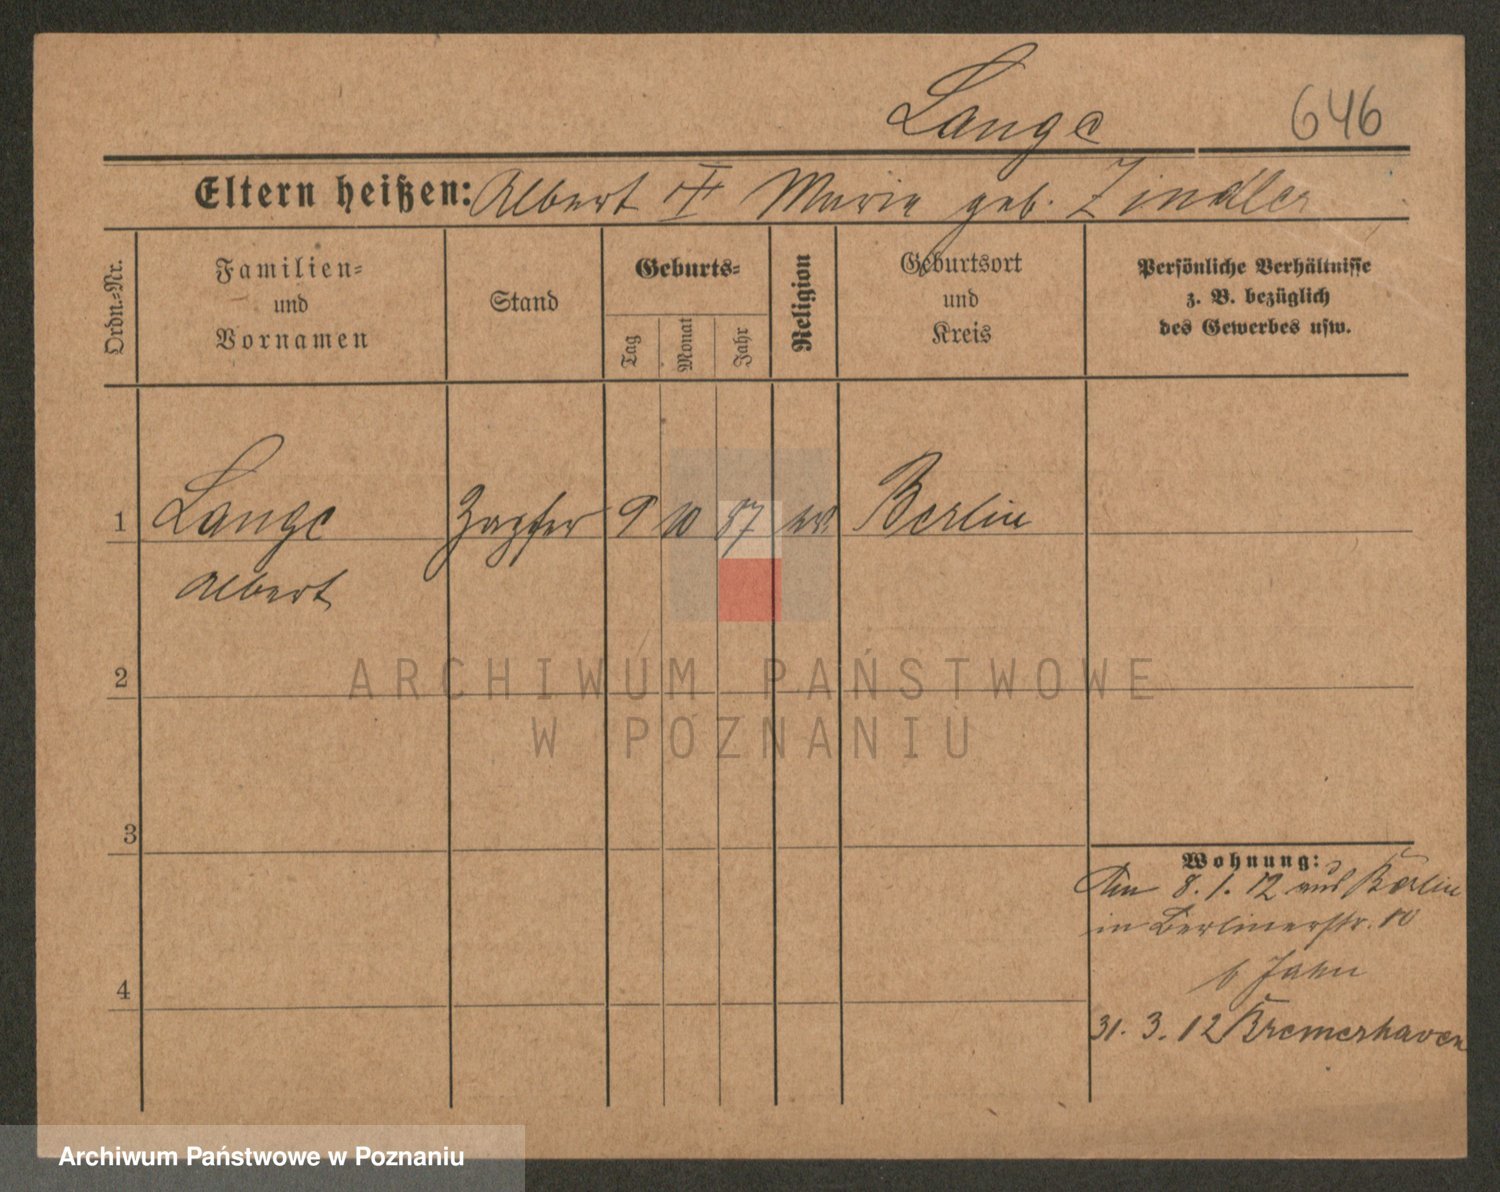 Lange 646
Eltern heißen: Albert Marie geb. Zindler
Ordn.-Nr.
Familien-
und
Vornamen
Stand
Geburts-
Tag
Monat
Jahr
Religion
Geburtsort
und
Kreis
Persönliche Verhältnisse
z. B. bezüglich
des Gewerbes usw.
1 Lange Zapfer 9 10 87 Berlin
Albert
2
ARCHIWUM PAŃSTWOWE
W POZNANIU
3
Wohnung:
Am 8. 1. 12 aus Berlin
in Berlinerstr. 10
b Jahn
4
31. 3. 12 Bremerhaven
Archiwum Państwowe w Poznaniu